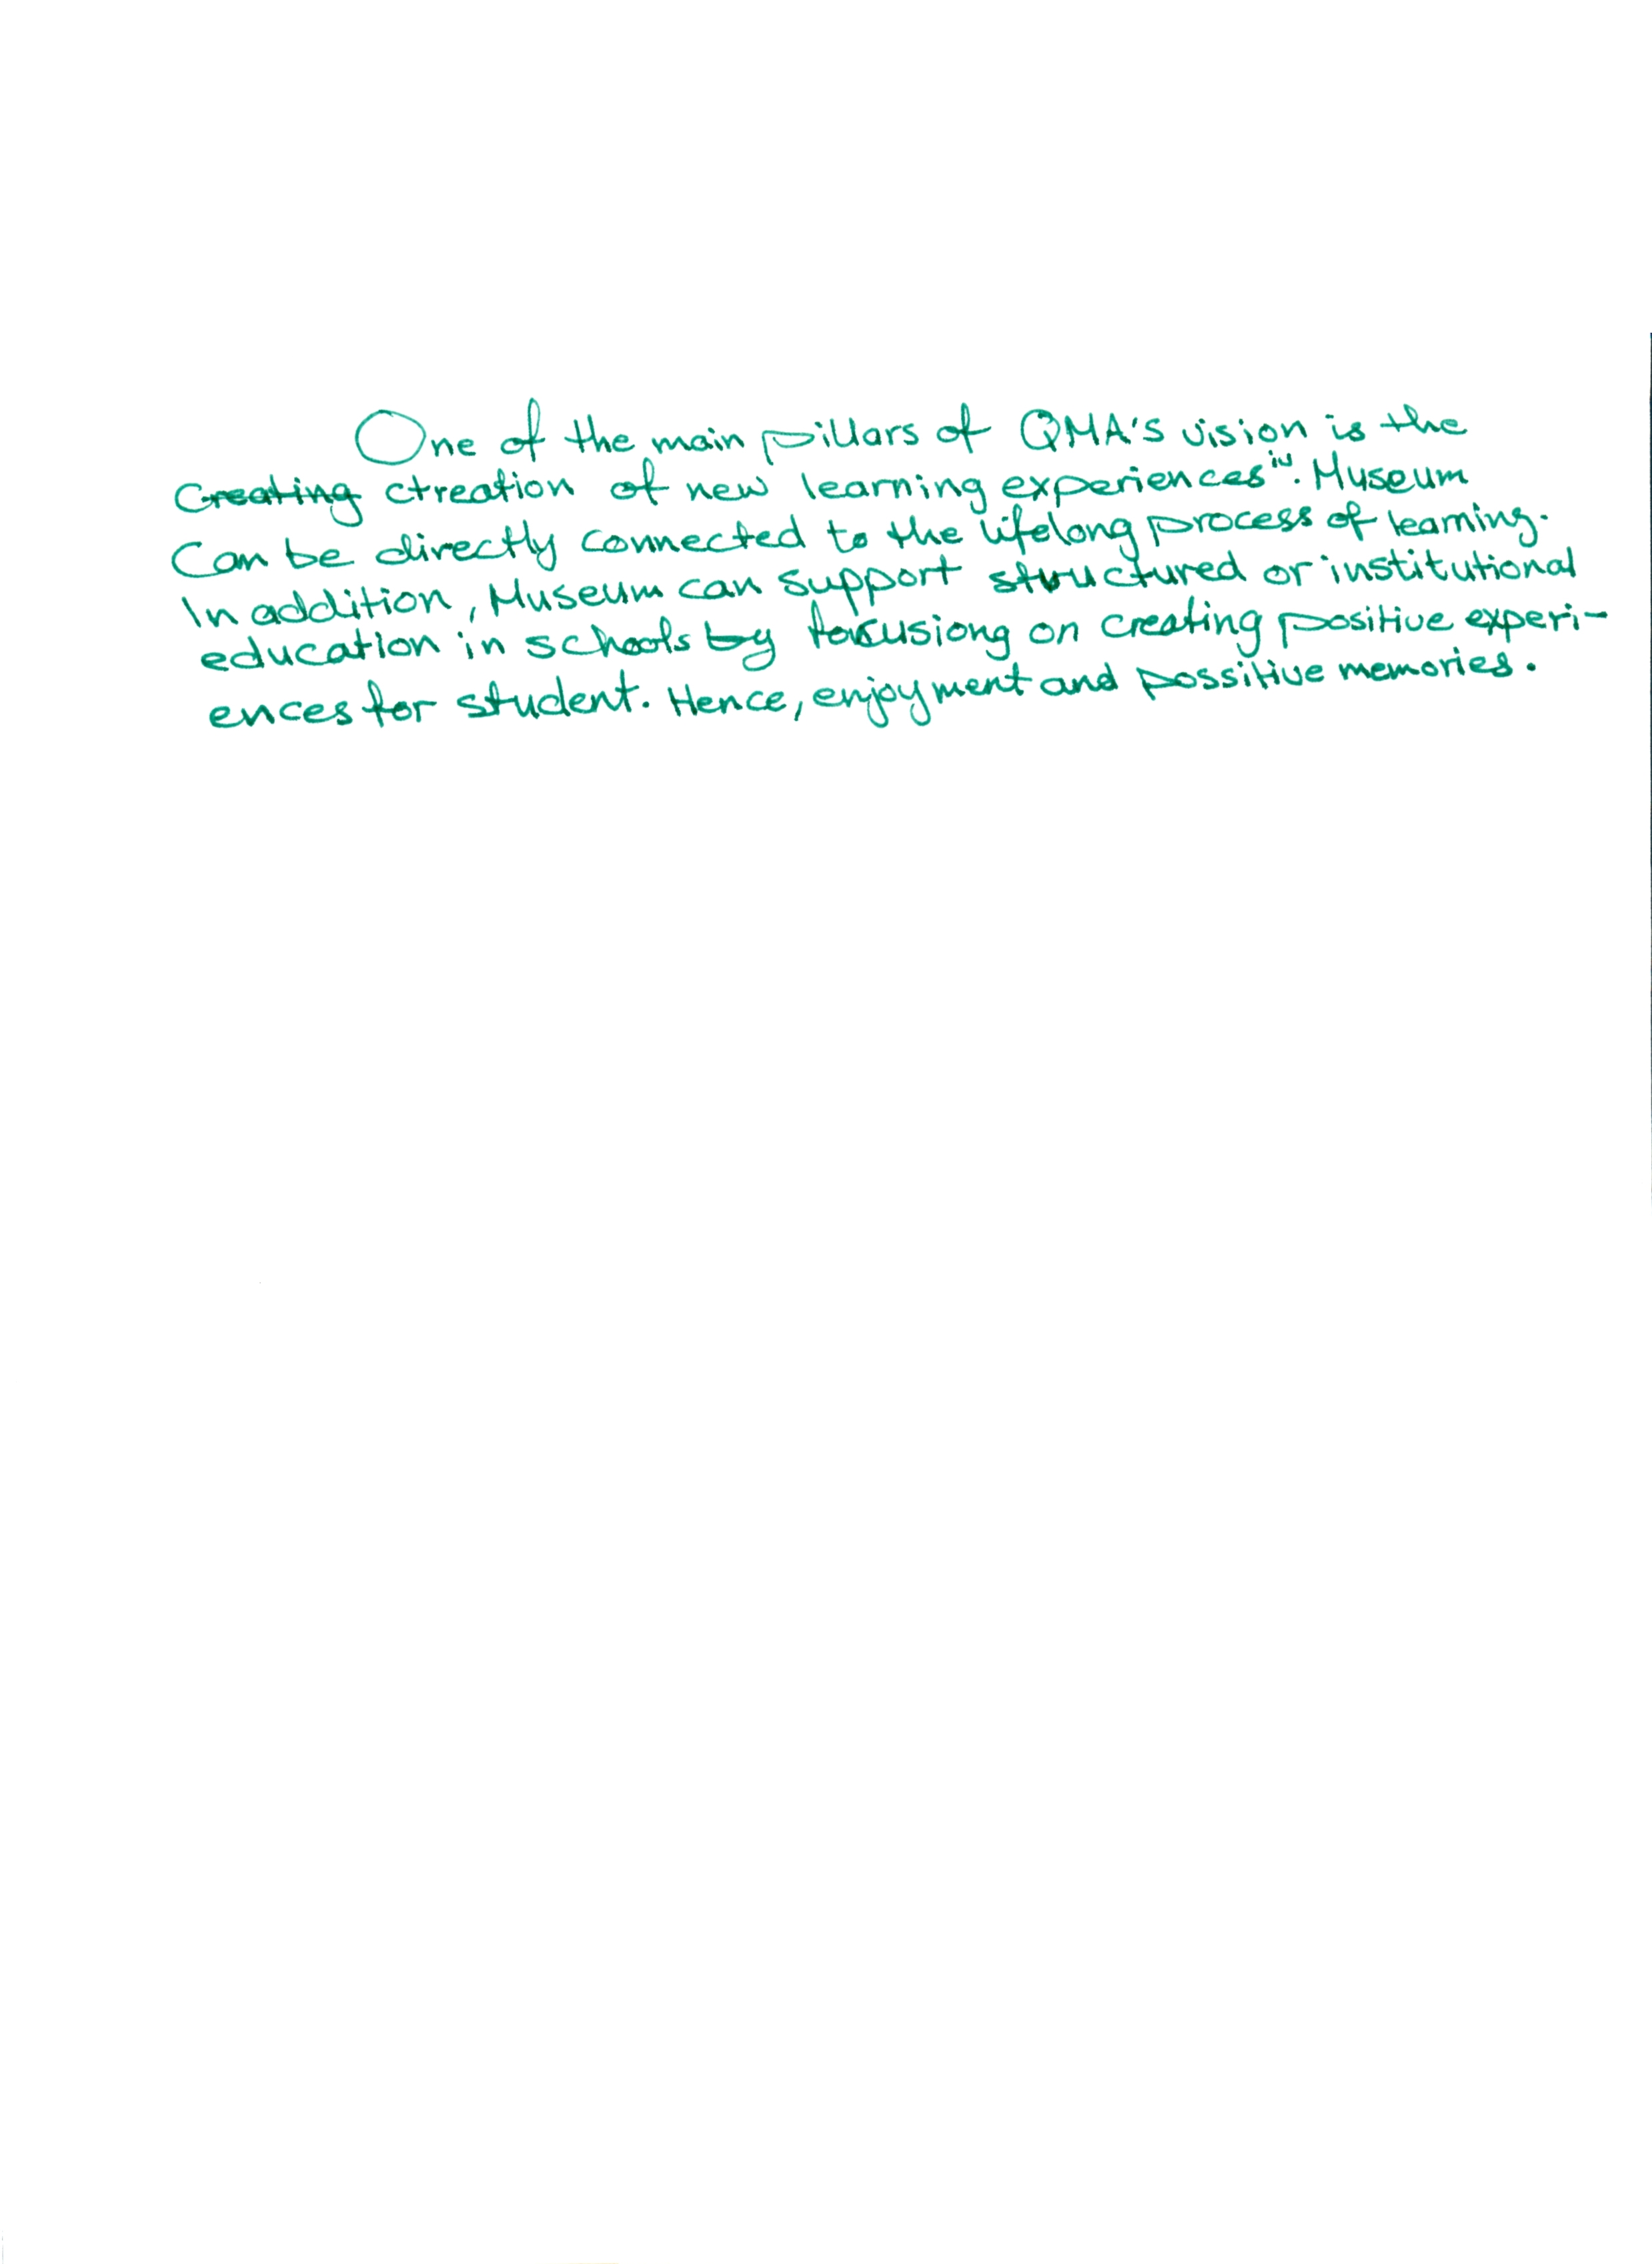 One of the main pillars of QMA's vision is the
creating ctreation of new learning experiences iv. Museum
can be directly connected to the lifelong process of learning.
In addition, Museum can support structured or institutional
education in schools by focusiong on creating positive experi-
ences for student. Hence, enjoyment and possitive memories.